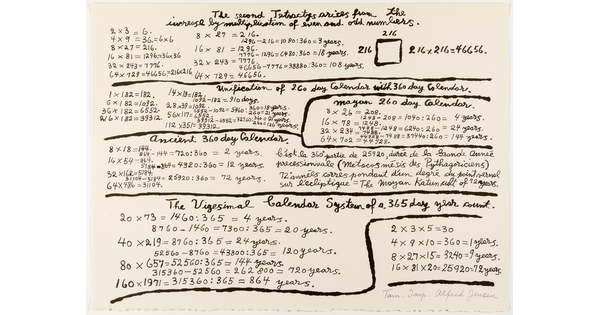 The second Tetractys arises from the
increase by multiplication of even and odd numbers.
2 × 3 = 6.
4 × 9 = 36 = 6×6
8 × 27 = 216.
16 × 81 = 1296 = 36×36
32 × 243 = 7776.
64 × 729 = 46656 = 216×216
8 × 27 = 216.
1296 - 216 = 1080 : 360 = 3 years.
16 × 81 = 1296.
7776 - 1296 = 6480 : 360 = 18 years.
32 × 243 = 7776.
46656 - 7776 = 38880 : 360 = 108 years.
64 × 729 = 46656.
216
216
216 × 216 = 46656.
Unification of 260 day Calendar with 360 day Calendar.
1 × 182 = 182.
6 × 182 = 1092.
36 × 182 = 6552.
216 × 182 = 39312.
14 × 13 = 182.
1092 - 182 = 910 days.
28 × 39 = 1092.
56 × 117 = 6552.
112 × 351 = 39312.
Mayan 260 day Calendar.
8 × 26 = 208.
1248 - 208 = 1040 : 260 = 4 years.
16 × 78 = 1248.
7488 - 1248 = 6240 : 260 = 24 years.
64 × 702 = 44928.
Ancient 360 day Calendar.
8 × 18 = 144.
864 - 144 = 720 : 360 = 2 years.
16 × 54 = 864.
5184 - 864 = 4320 : 360 = 12 years.
32 × 162 = 5184.
31104 - 5184 = 25920 : 360 = 72 years.
64 × 486 = 31104.
C'est la 360e partie de 25920, durée de la Grande Année
précessionnelle (Météores même de Pythagoriciens)
72 années correspondant d'un degré du point vernal
sur l'écliptique = The mayan Katun cult of 72 years.
The Vigesimal Calendar System of a 365 day year count.
20 × 73 = 1460 : 365 = 4 years.
8760 - 1460 = 7300 : 365 = 20 years.
40 × 219 = 8760 : 365 = 24 years.
52560 - 8760 = 43800 : 365 = 120 years.
80 × 657 = 52560 : 365 = 144 years.
315360 - 52560 = 262800 = 720 years.
160 × 1971 = 315360 : 365 = 864 years.
2 × 3 × 5 = 30
4 × 9 × 10 = 360 = 1 year.
8 × 27 × 15 = 3240 = 9 years.
16 × 81 × 20 = 25920 = 72 years.
Tam. Imp. Alfred Jensen